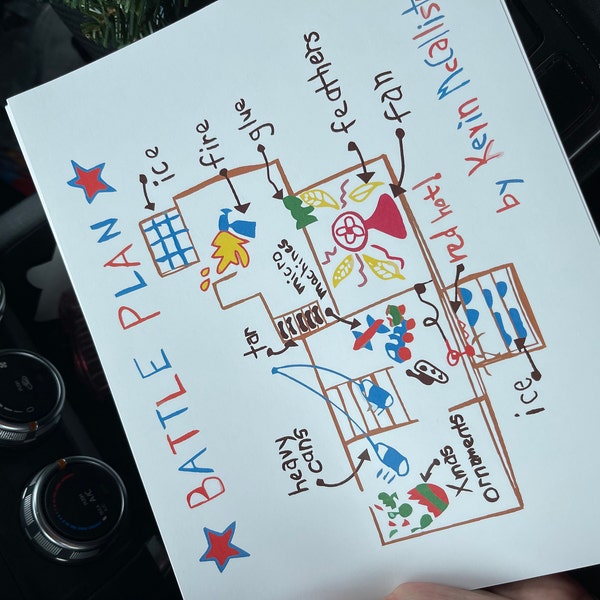 BATTLE PLAN
ice
fire
glue
feathers
fan
micro
machines
tar
red hot!
heavy
cans
Xmas
Ornaments
ice
by Kevin McCallist